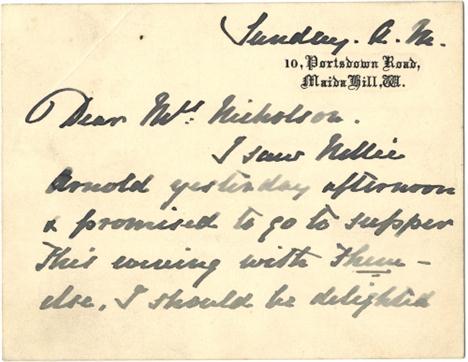 Sunday. A. M.
10, Portsdown Road,
Maida Hill, W.
Dear Mrs. Nicholson.
I saw Nellie
Arnold yesterday afternoon
& promised to go to supper
this evening with them –
else, I should be delighted